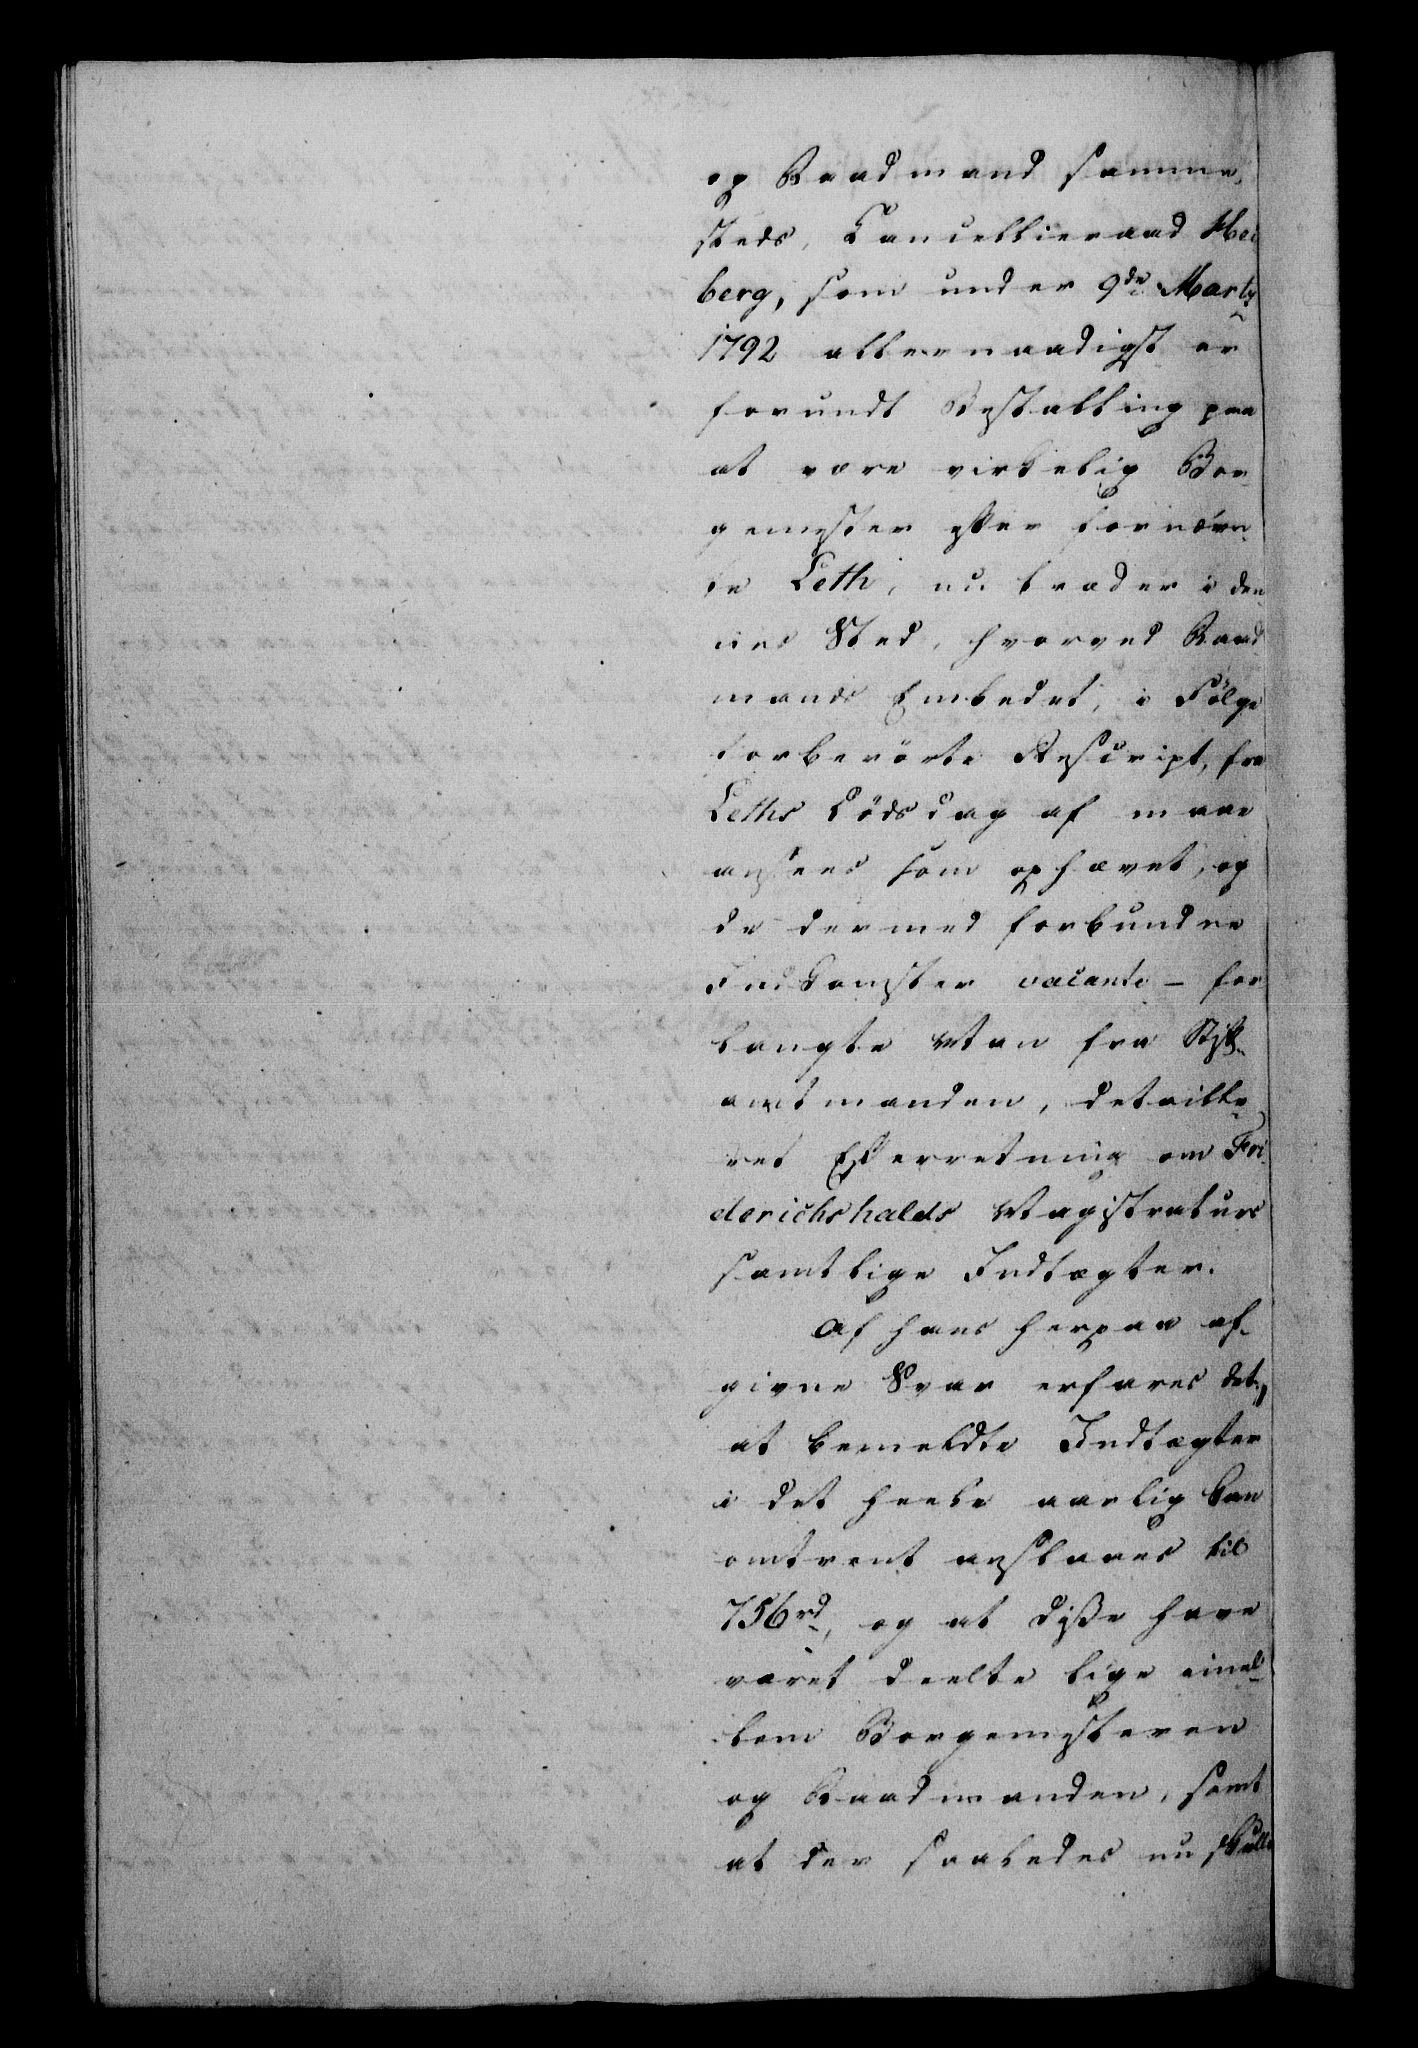 og Raadmand samme¬
steds, Cancellieraad Hei
berg, som under 9de Marty
1792 allernaadigst er
forundt Bestalling paa
at være virkelig Bor¬
gemester efter fornævn¬
te Leth, nu træder i den¬
nes Sted, hvorved Raad
mands Embedet, i Følge
forberörte Rescript, fra
Leths Dödsdag af maae
ansees som ophævet, og
de dermed forbundne
Indkomster vacante – for
langte Man fra Stift¬
amtmanden, detaille¬
ret Efterretning om Fri
derichshalds Magistraturs
samtlige Indtægter.
Af hans herpaa af¬
givne Svar erfares det,
at bemeldte Indtægter
i det heele aarlig kan
omtrent anslaaes til
756 rd, og at disse have
været deelte lige imel¬
lem Borgemesteren
og Raadmanden, samt
at der saaledes nu skulle